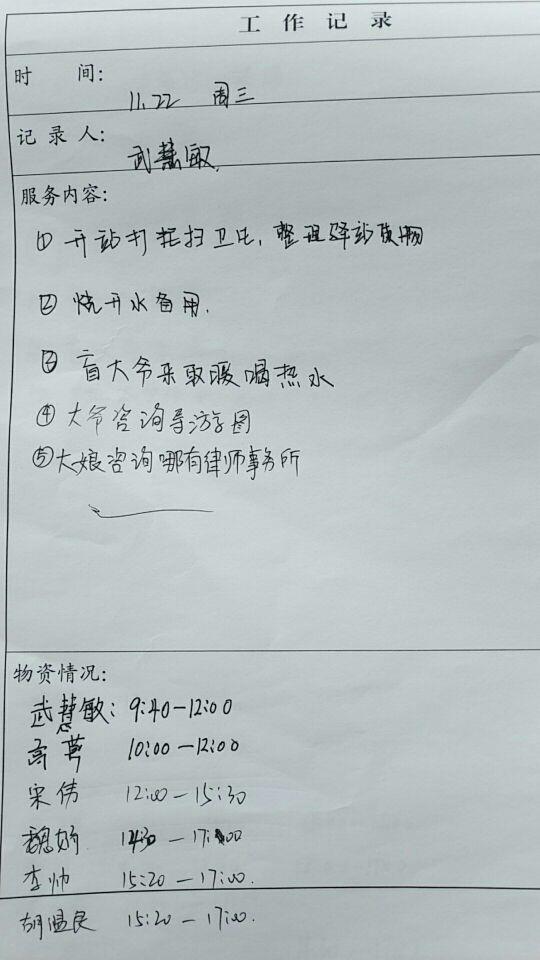 工作记录
时 间：
11.22 周三
记录人：
武慧敏
服务内容：
① 开站打扫卫生，整理驿站货物
② 烧开水备用.
③ 盲大爷来取暖喝热水
④ 大爷咨询导游图
⑤ 大娘咨询哪有律师事务所
物资情况：
武慧敏：9:40-12:00
高 10:00-12:00
宋伟 12:00-15:30
魏娇 14:30-17:00
李帅 15:20-17:00.
胡温民 15:20-17:00.